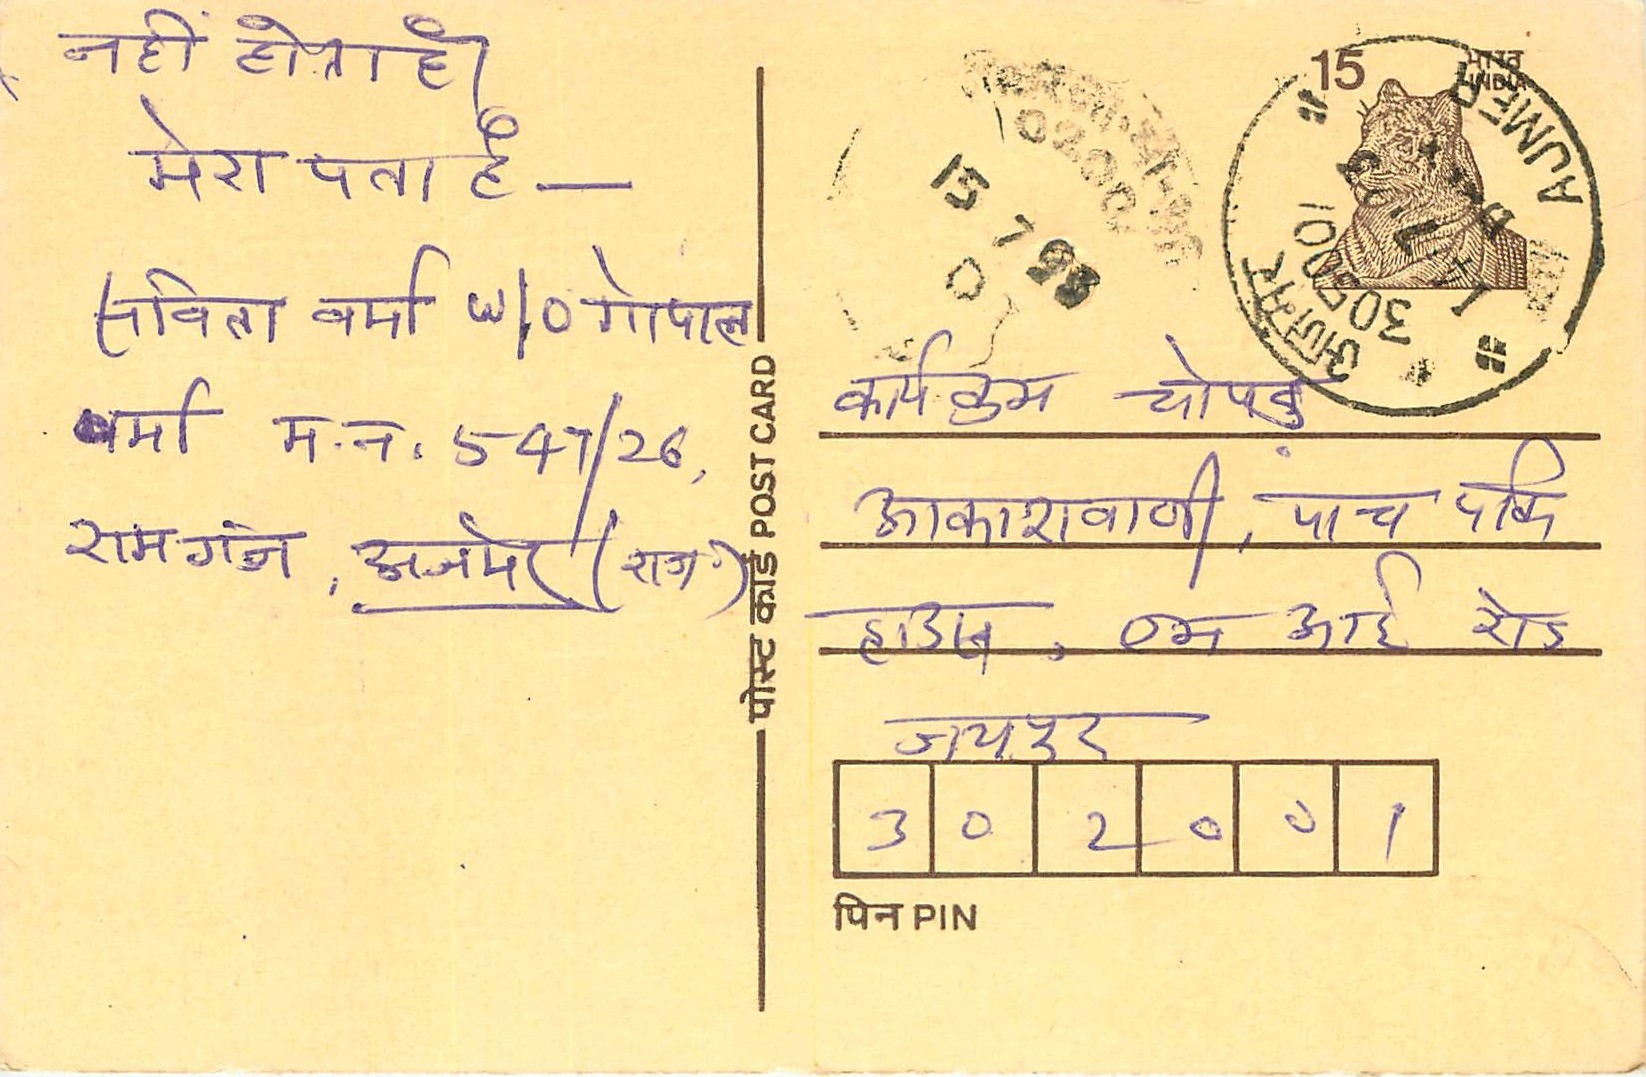 नहीं होता है।
मेरा पता है —
सविता वर्मा w/o गोपाल
वर्मा म.न. 547/26,
रामगंज, अजमेर (राज.)
पोस्ट कार्ड POST CARD
15 भारत
INDIA
AJMER
अजमेर
305001
15 7
कार्यक्रम चोपड़
आकाशवाणी, पांच
हाउस, एम आई रोड
जयपुर
302001
पिन PIN